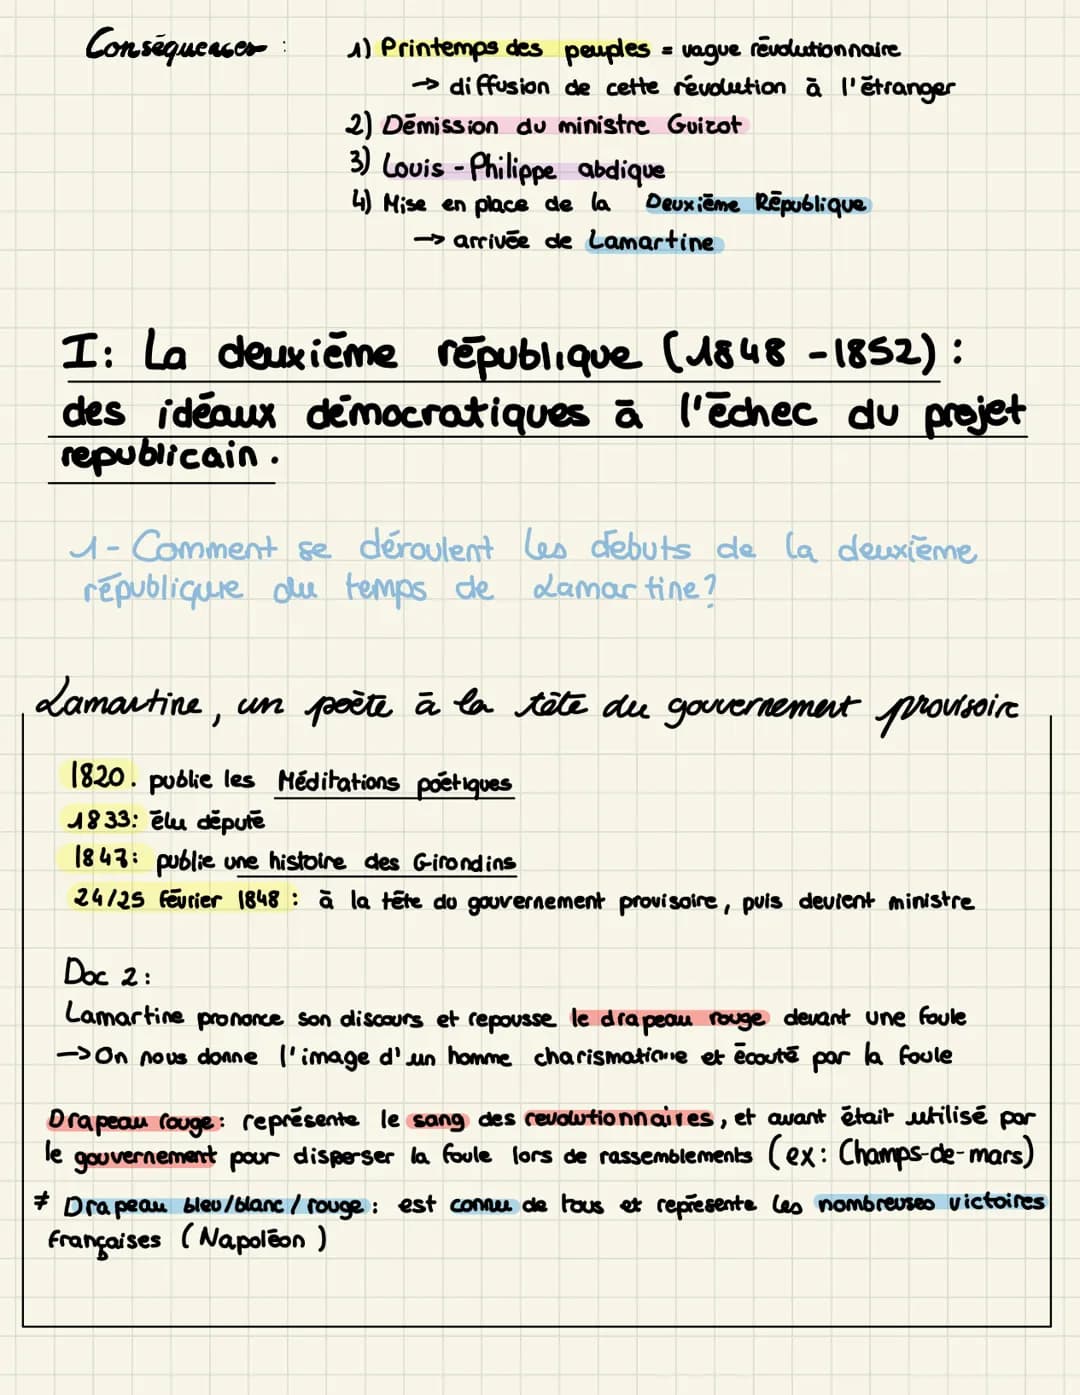 Conséquences : 1) Printemps des peuples = vague révolutionnaire
→ diffusion de cette révolution à l'étranger
2) Démission du ministre Guizot
3) Louis-Philippe abdique
4) Mise en place de la Deuxième République
→ arrivée de Lamartine
I: La deuxième république (1848 - 1852) :
des idéaux démocratiques à l'échec du projet
republicain.
1- Comment se déroulent les debuts de la deuxième
république du temps de Lamartine?
Lamartine, un poète à la tête du gouvernement provisoire
1820. publie les Méditations poétiques
1833: élu député
1847: publie une histoire des Girondins
24/25 février 1848 : à la tête du gouvernement provisoire, puis devient ministre
Doc 2:
Lamartine prononce son discours et repousse le drapeau rouge devant une foule
→ On nous donne l'image d'un homme charismatique et écouté par la foule
Drapeau rouge: représente le sang des revolutionnaires, et avant était utilisé par
le gouvernement pour disperser la foule lors de rassemblements (ex: Champs-de-mars)
≠ Drapeau bleu/blanc/rouge: est connu de tous et représente les nombreuses victoires
françaises (Napoléon)